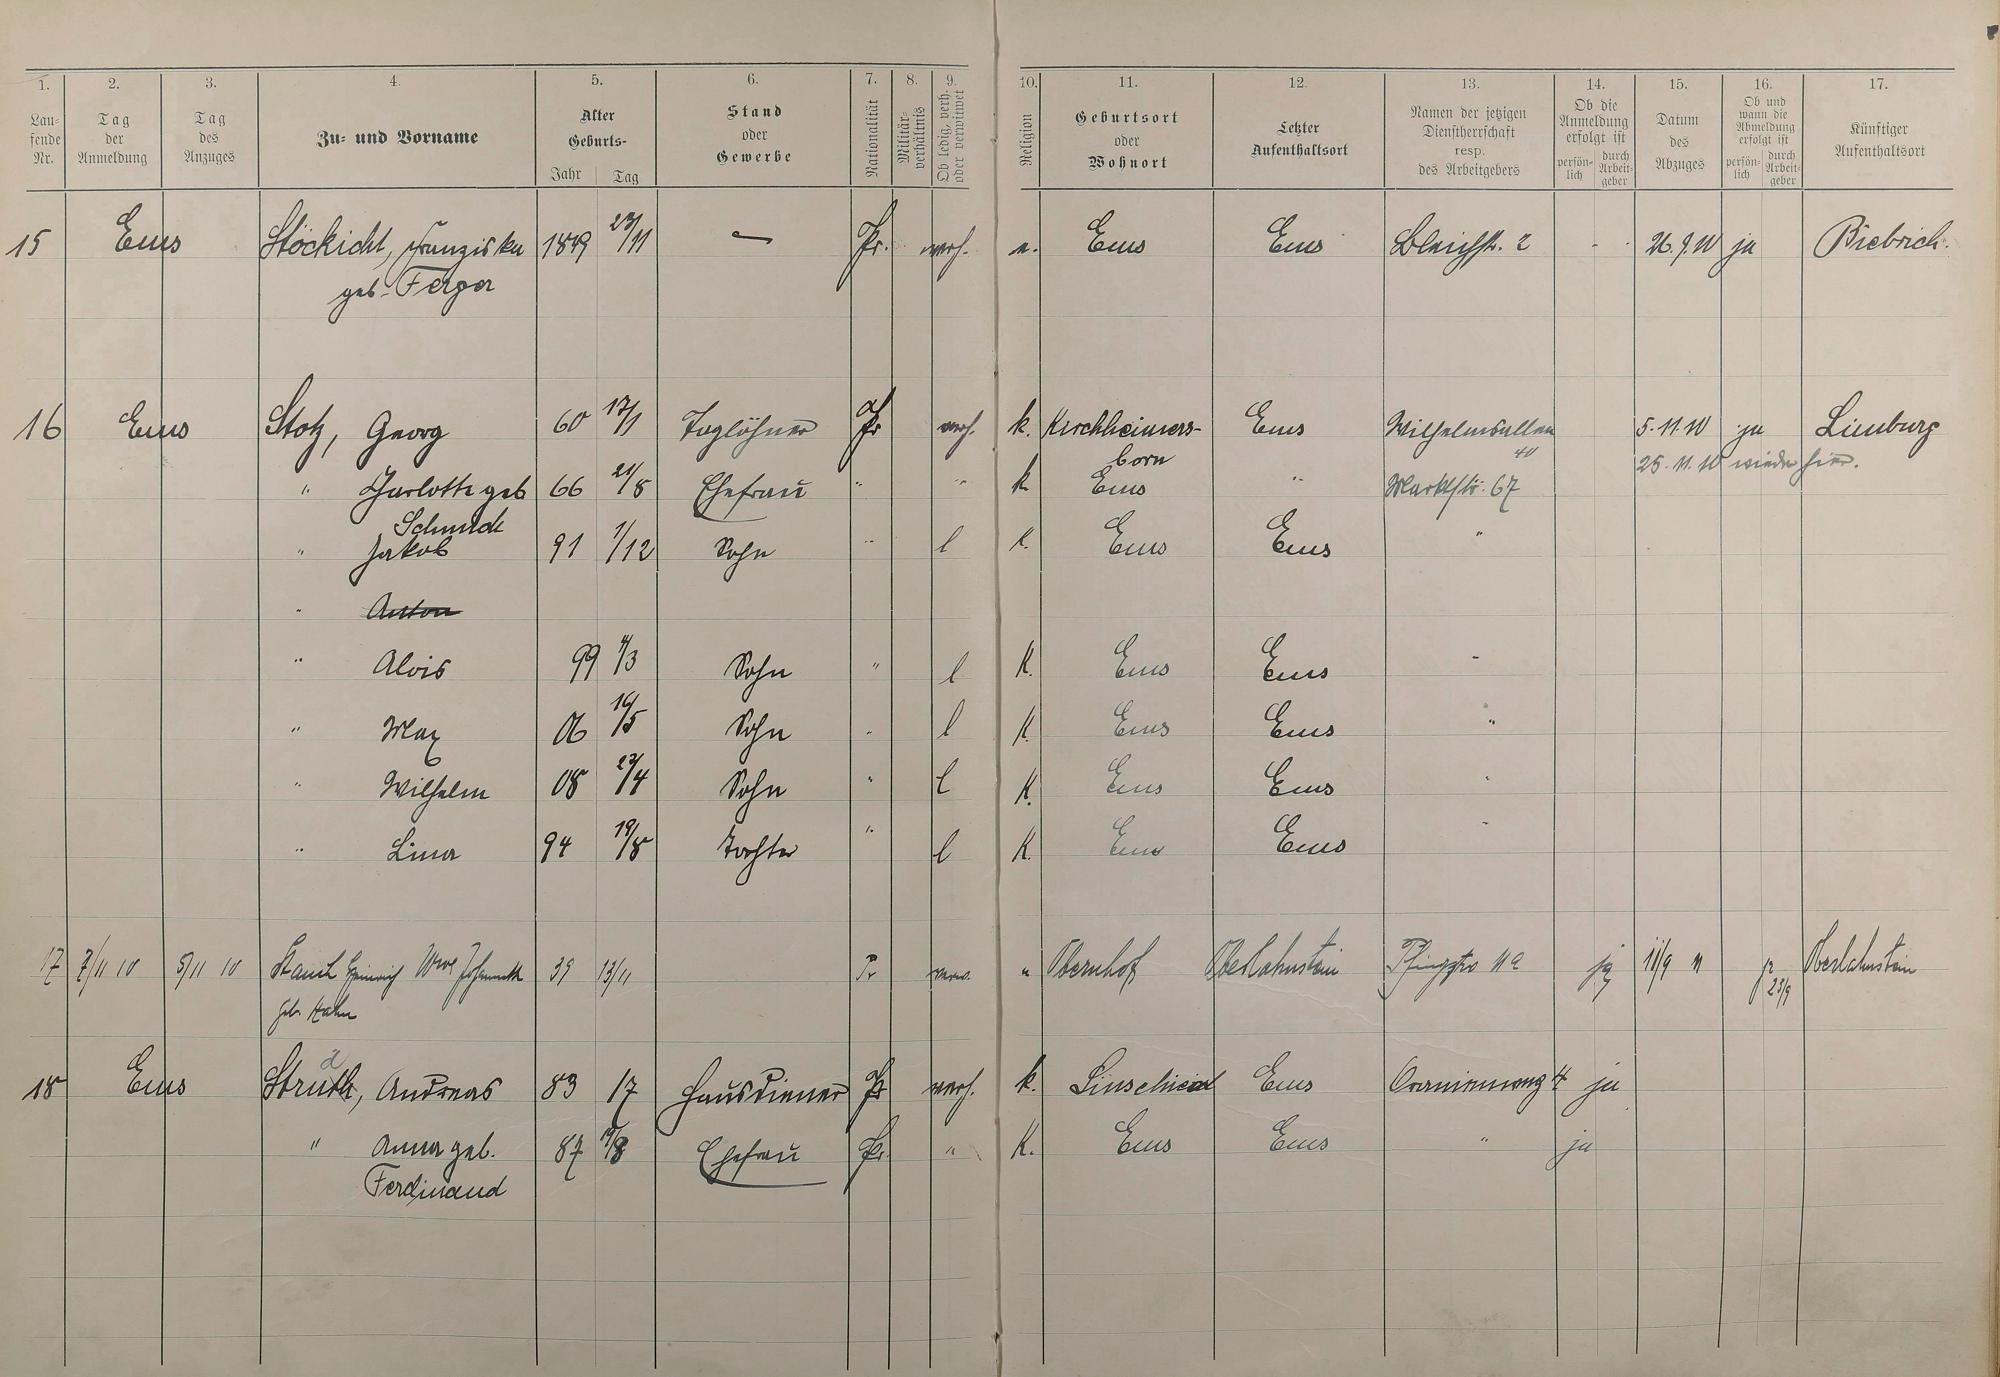 1. 2. 3. 4. 5. 6. 7. 8. 9. 10. 11. 12. 13. 14. 15. 16. 17.
Lau-
fende
Nr.
Tag
der
Anmeldung
Tag
des
Anzuges
Zu- und Vorname
Alter
Geburts-
Jahr Tag
Stand
oder
Gewerbe
Nationalität
Militär-
verhältnis
Ob ledig, verh.
oder verwitwet
Religion
Geburtsort
oder
Wohnort
Letzter
Aufenthaltsort
Namen der jetzigen
Dienstherrschaft
resp.
des Arbeitgebers
Ob die
Anmeldung
erfolgt ist
persön-
lich
durch
Arbeit-
geber
Datum
des
Abzuges
Ob und
wann die
Abmeldung
erfolgt ist
persön-
lich
durch
Arbeit-
geber
Künftiger
Aufenthaltsort
15 Ems Stöckicht, Franziska 1849 23/11 — Pr. verh. e. Ems Ems Bleichstr. 2 - - 26.9.10 ja Biebrich.
geb. Ferger
16 Ems Stotz, Georg 60 17/1 Taglöhner Pr verh. k. Kirchheimers- Ems Wilhelmsallee 5.11.10 ja Limburg
born 40 25.11.10 wieder hier.
" Charlotte geb 66 21/8 Ehefrau " " k Ems " Marktstr. 67
Schmidt
" Jakob 91 1/12 Sohn " l k. Ems Ems "
" Anton
" Alois 99 4/3 Sohn " l K. Ems Ems "
" Max 06 16/5 Sohn " l K. Ems Ems "
" Wilhelm 08 23/4 Sohn " l K. Ems Ems "
" Lina 94 19/8 Tochter " l K. Ems Ems "
17 7/11 10 5/11 10 Heinrich Wwe 39 13/11 Pr verw. " Obernhof Oberlahnstein 11a ja 11/9 11 ja Oberlahnstein
geb. Hahn 23/9
18 Ems Struth, Andreas 83 17 Hausdiener Pr verh. k. Linscheid Ems Oranienweg 4 ja
" Anna geb. 87 19/8 Ehefrau Pr. " K. Ems Ems " ja
Ferdinand